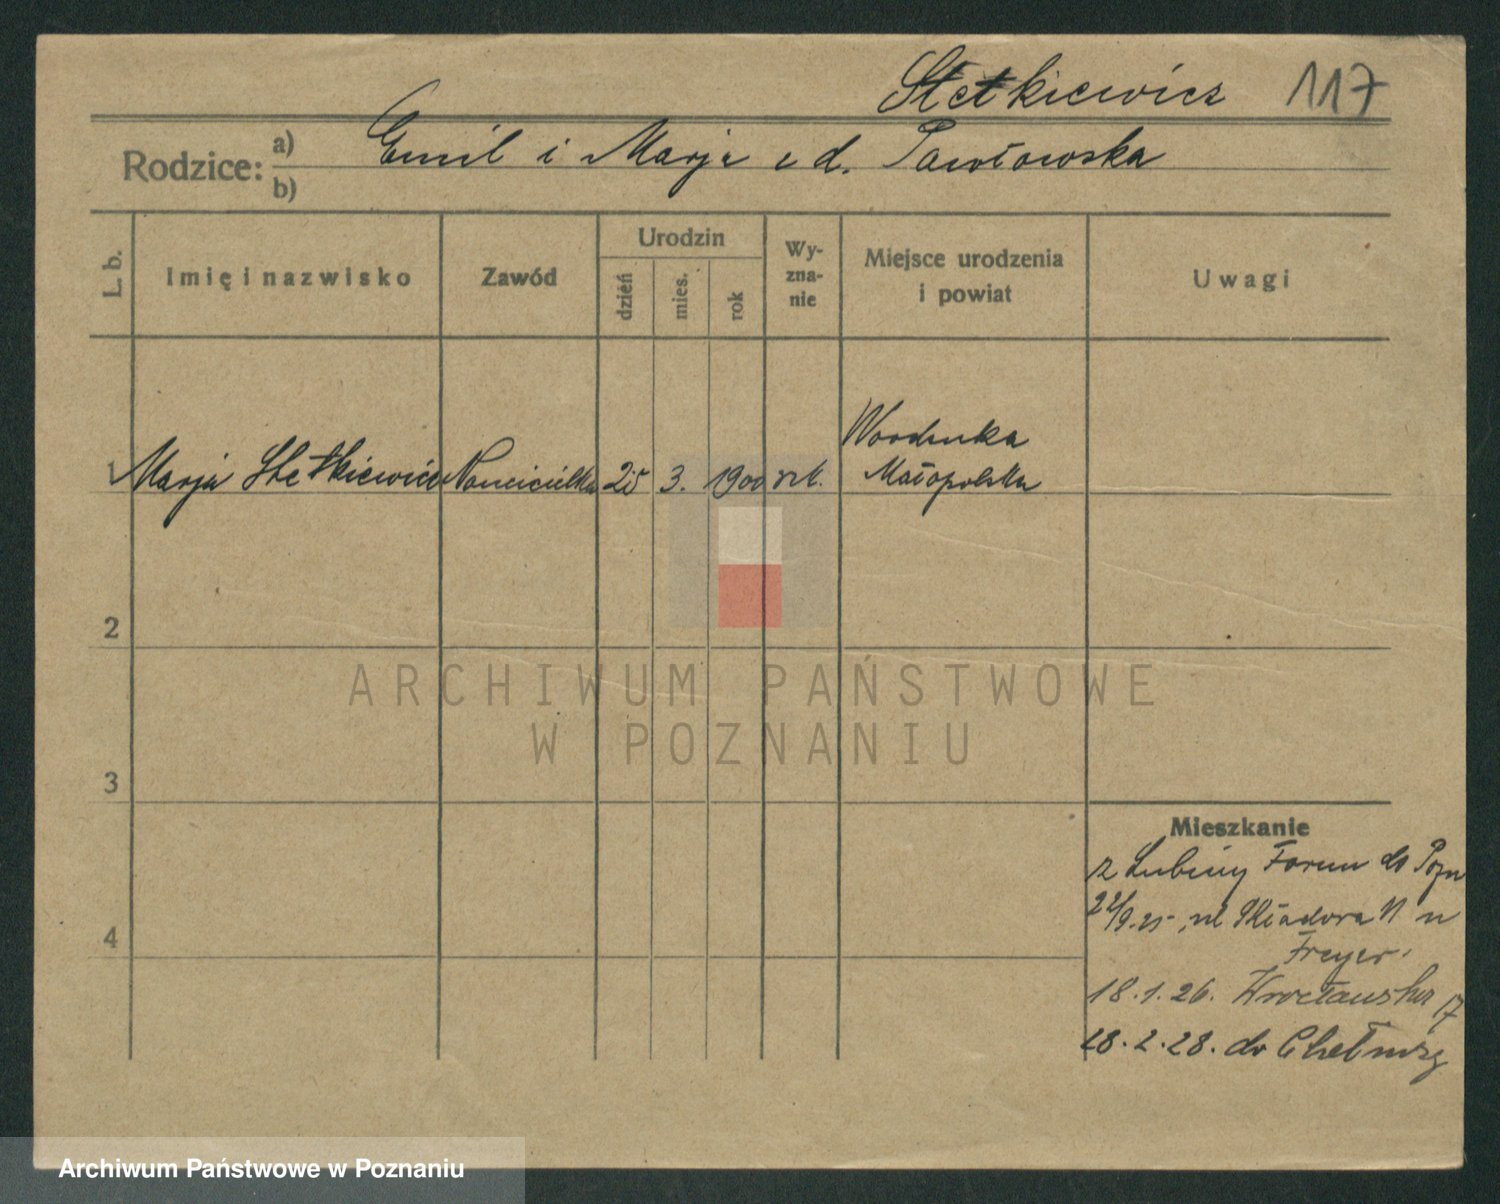 Stetkiewicz 117
Rodzice: a) Emil i Marja z d. Pawłowska
b)
L. b.
Imię i nazwisko
Zawód
Urodzin
dzień
mies.
rok
Wy-
zna-
nie
Miejsce urodzenia
i powiat
Uwagi
1 Marja Stetkiewicz Nauczycielka 25 3. 1900 rzk.
Małopolska
2
3
4
ARCHIWUM PAŃSTWOWE
W POZNANIU
Mieszkanie
z do Pozn
22/9.25 ul Składowa 11 u
Freyer.
18.1.26. Wrocławska 17
28.2.28. do Chełmży
Archiwum Państwowe w Poznaniu